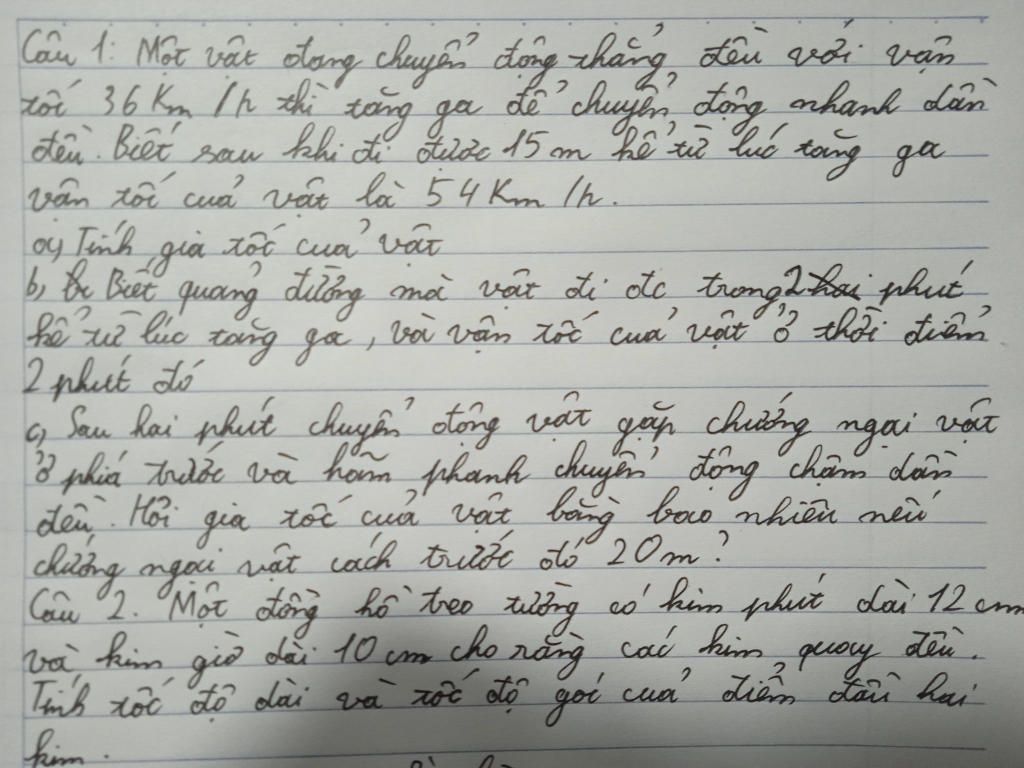 Câu 1: Một vật đang chuyển động thẳng đều với vận
tốc 36 Km /h thì tăng ga để chuyển động nhanh dần
đều. Biết sau khi đi được 15 m kể từ lúc tăng ga
vận tốc cuả vật là 54 Km /h.
a, Tính gia tốc cuả vật
b, Biết quảng đường mà vật đi đc trong 2 phút
kể từ lúc tăng ga, và vận tốc cuả vật ở thời điểm
2 phút đó
c, Sau hai phút chuyển động vật gặp chướng ngại vật
ở phiá trước và hãm phanh chuyển động chậm dần
đều. Hỏi gia tốc cuả vật bằng bao nhiêu nếu
chướng ngại vật cách trước đó 20 m?
Câu 2. Một đồng hồ treo tường có kim phút dài 12 cm
và kim giờ dài 10 cm cho rằng các kim quay đều.
Tính tốc độ dài và tốc độ góc cuả điểm đầu hai
kim.